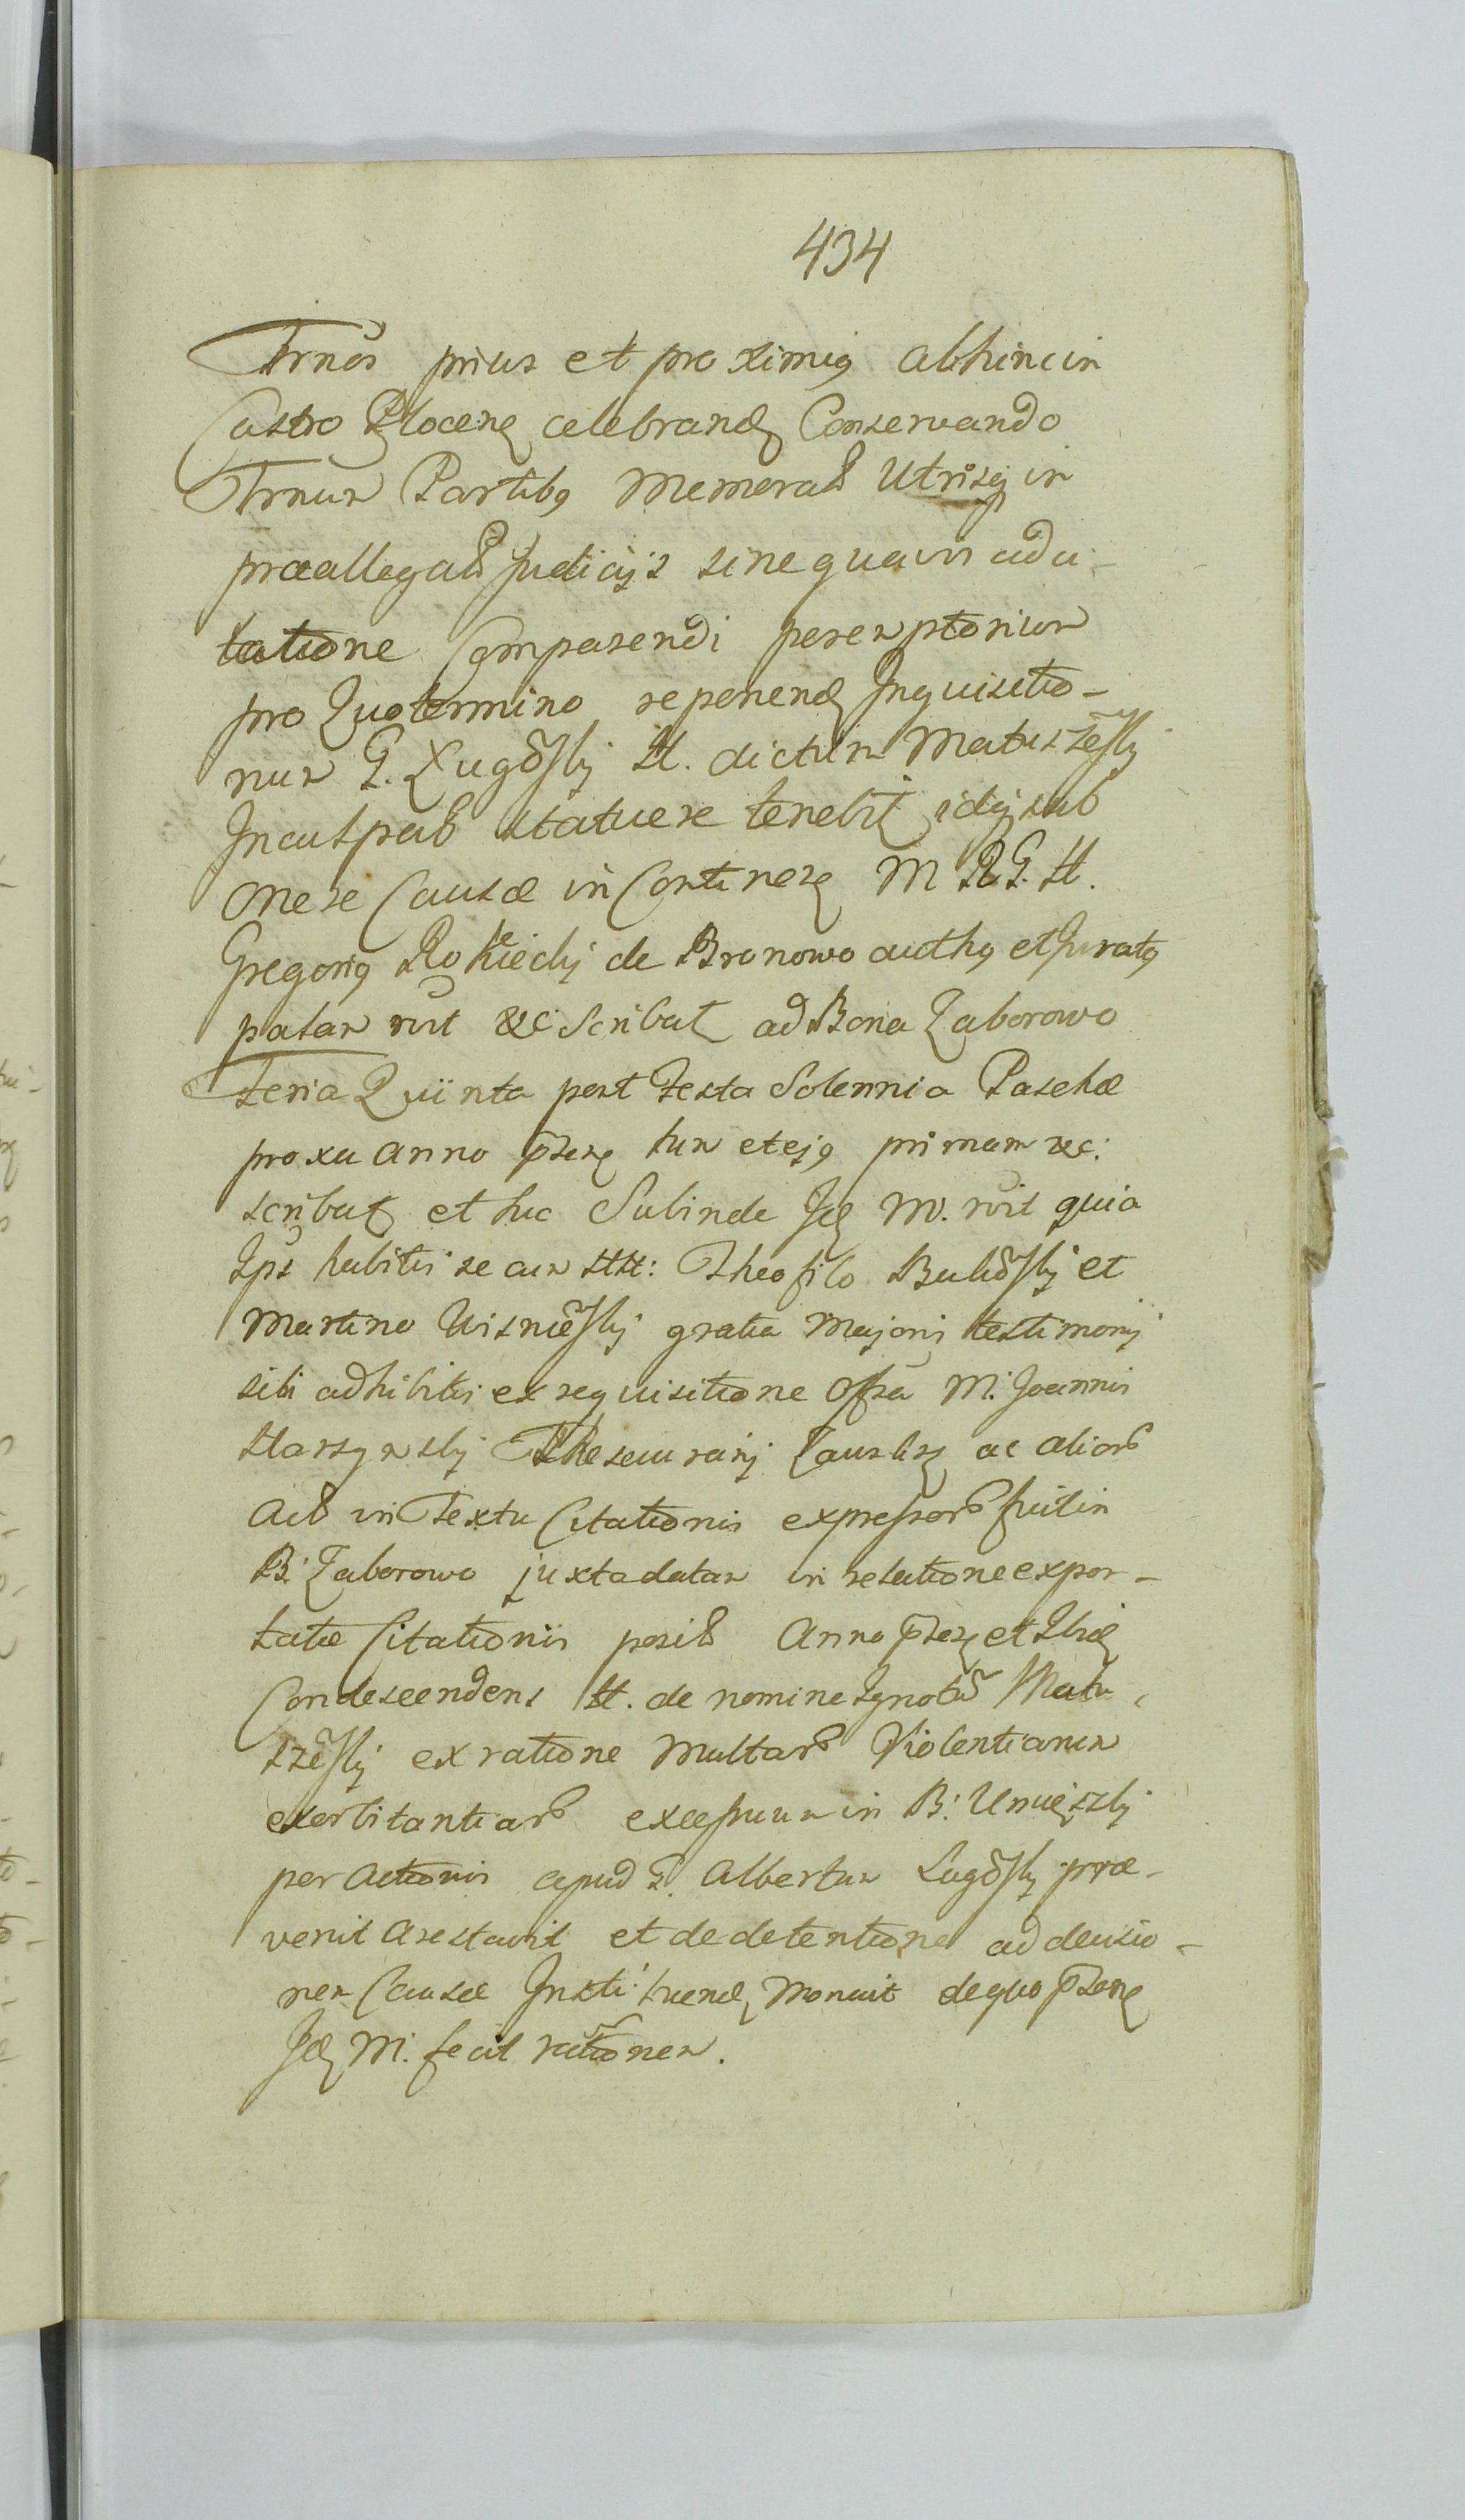 434
Trnos prius et proximiꝯ abhinc in
Castro Płocenꝭ celebrandꝭ Conservando
Trnum Partibꝯ Memorat Utrisqꝫ in
præallegat Judicijs sine quavis adci-
tatione Comparendi peremptorium
pro Quo termino reponendꝭ Inquisitio-
num G. Ługoski N. dictum Matuszeski
Inculpat statuere tenebit idqꝫ sub
onere Causæ in Continenꝭ M RG. N.
Gregoriꝯ Rokicki de Bronowo authꝯ et Juratꝯ
palam rčvit &c Scribat ad Bona Zaborowo
Feria Quinta post Festa Solennia Paschæ
proxu anno p̄senꝭ tum et ejꝯ primam &c:
scribat et huc Subinde Jdꝭ M. rčvit quia
Ips habitis secum NN: Theofilo Bukoski et
Martino Wisnieski gratia Majoris testimonij
sibi adhibitis ex requisitione Offsa M. Joannis
Narzynski Thesaurarij Zauskrꝭ ac alior
Act in Textu Citationis expressor fuit in
B: Zaborowo juxta datam in relatione expor-
tatæ Citationis posit Anno p̄senꝭ et Ibidꝭ
Condescendens N. de nomine Ignotū Matu-
szeski ex ratione Multar Violentiarum
exorbitantiar excessuum in B: Umięszki
peractionis apud G. Albertum Lugoski præ-
venit arestavit et de detentione ad decisio-
nem Causæ Insti:tuendꝭ Monuit de quo p̄senꝭ
Jdꝭ M. fecit rationem.